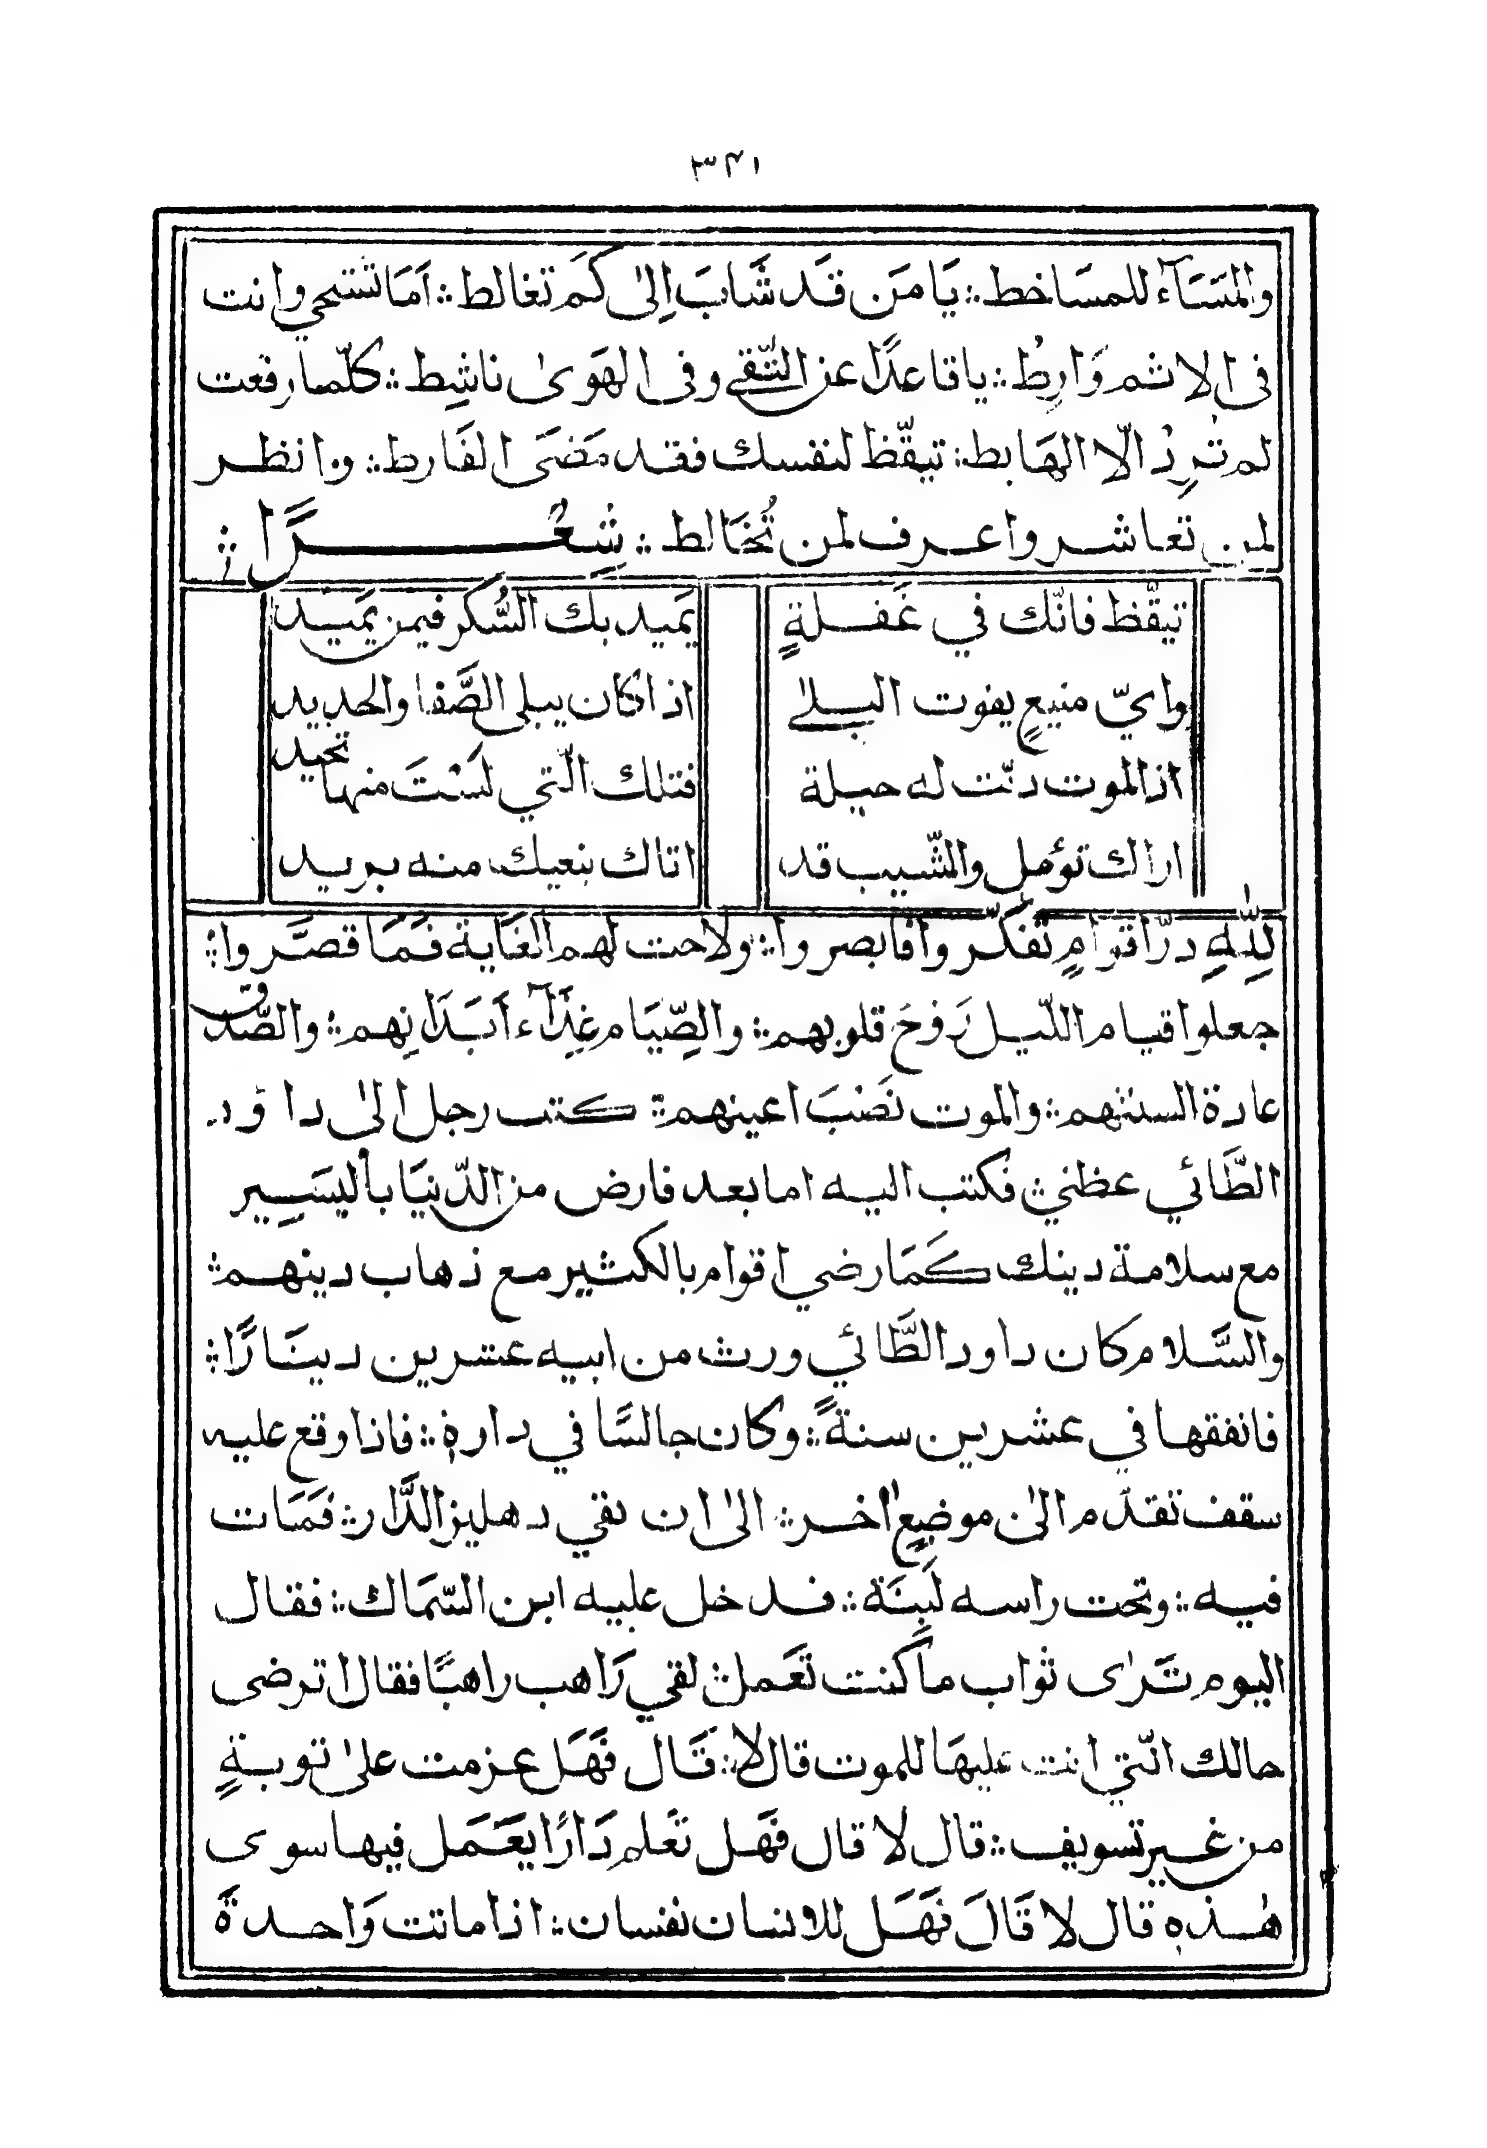 ٣٤١
والمَسَآء للمسَاخط؛ يَا مَن قَد شَابَ اِلىٰ كَم تغَالط؛ اَمَا تَستحي وانت
فى الاثم وَارِط؛ يا قاعدًا عن التّقى وفى الهَوىٰ ناشِط؛ كلّما رفعت
لم تَرِد الّا الهَابط؛ تيقّظ لنفسك فقد مَضَى الفَارط؛ وانظر
لمن تعَاشر واعرف لمن تُخَالط؛ شِعْرًا؛
تيقّظ فانّك في غَفلةٍ يَميد بك السُّكر فيمن يَميد
وايّ منيعٍ يفوت البلىٰ اذا كان يبلى الصَّفا والحديد
اذا الموت دنّت له حيلة فتلك الّتي لَسْتَ منها تحيد
اراك تؤمل والشّيب قد اتاك بنعيك منه بريد
لِلّٰهِ درّ اقوامٍ تفَكّروا فابصروا؛ ولاحت لهم الغَاية فمَا قصَّروا؛
جعلوا قيام اللّيل رَوحَ قلوبهم؛ والصِّيَام غِذَآء اَبَدَانِهم؛ والصُّدق
عادة السنتهم؛ والموت نَصْبَ اعينهم؛ كتب رجل الىٰ داؤد
الطَّائي عظني؛ فكتب اليه اما بعد فارض من الدّنيَا باليَسِير
مع سلامة دينك كَمَا رضي اقوام بالكثير مع ذهاب دينهم؛
والسَّلام كان داود الطَّائي ورث من ابيه عشرين دينَارًا؛
فانفقها في عشرين سنةً؛ وكان جالسًا في دارهٖ؛ فاذا وقع عليه
سقف تقدّم الىٰ موضعٍ اٰخر؛ الىٰ ان بقي دهليز الدَّار؛ فَمَات
فيه؛ وتحت راسه لَبِنَة؛ فدخل عليه ابن السّمَاك؛ فقال
اليوم تَرٰى ثواب ما كنت تَعَمل؛ لقي رَاهب راهبًا فقال اترضى
حالك الّتي انت عليهَا للموت قال لا؛ قَال فَهَل عزمت علىٰ توبةٍ
من غير تسويف؛ قال لا قال فَهَل تَعلم دَارًا يعَمَل فيها سوى
هٰذهٖ قال لا قَالَ فَهَل للانسان نفسان؛ اذا ماتت وَاحدةً